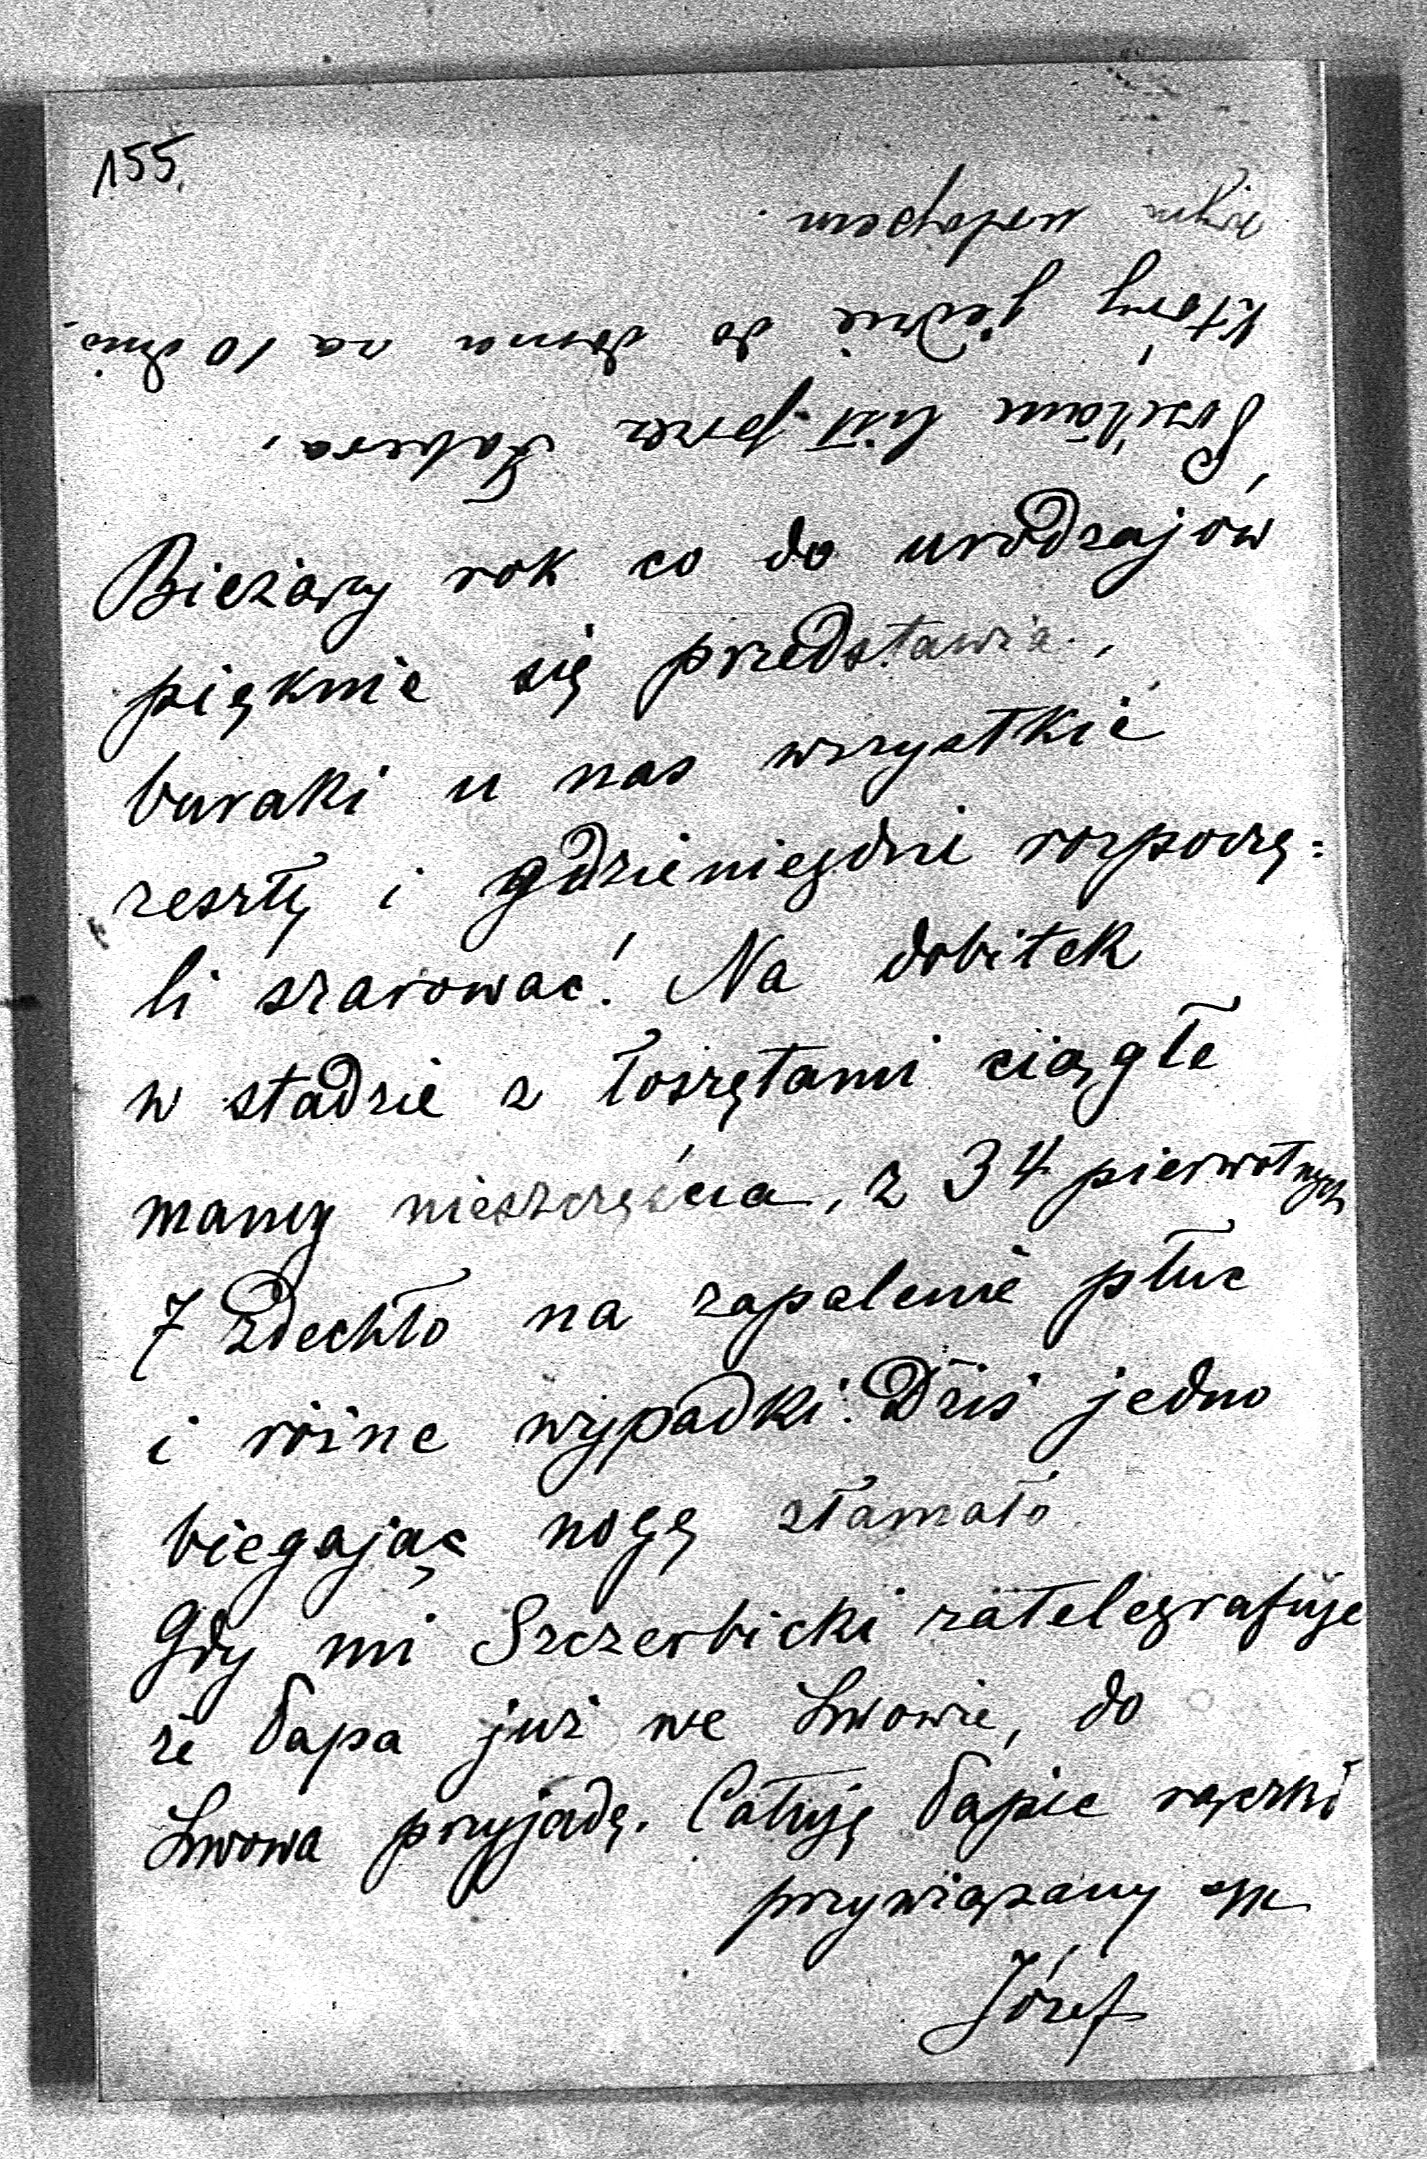 155.
Bieżący rok co do urodzajów
pięknie się przedstawia,
buraki u nas wszystkie
zeszły i gdzieniegdzie rozpoczę=
li szarować! Na dobitek
w stadzie z łoszętami ciągłe
mamy nieszczęścia, z 34 pierwotnych
7 zdechło na zapalenie płuc
i różne wypadki. Dziś jedno
biegając nogę złamało
Gdy mi Szczerbicki zatelegrafuje
że Papa już we Lwowie, do
Lwowa przyjadę. Całuję Papie rączki
przywiązany syn
Józef
Posełam list przez Fabera,
który jedzie do domu na 10 dnio
urlopem.